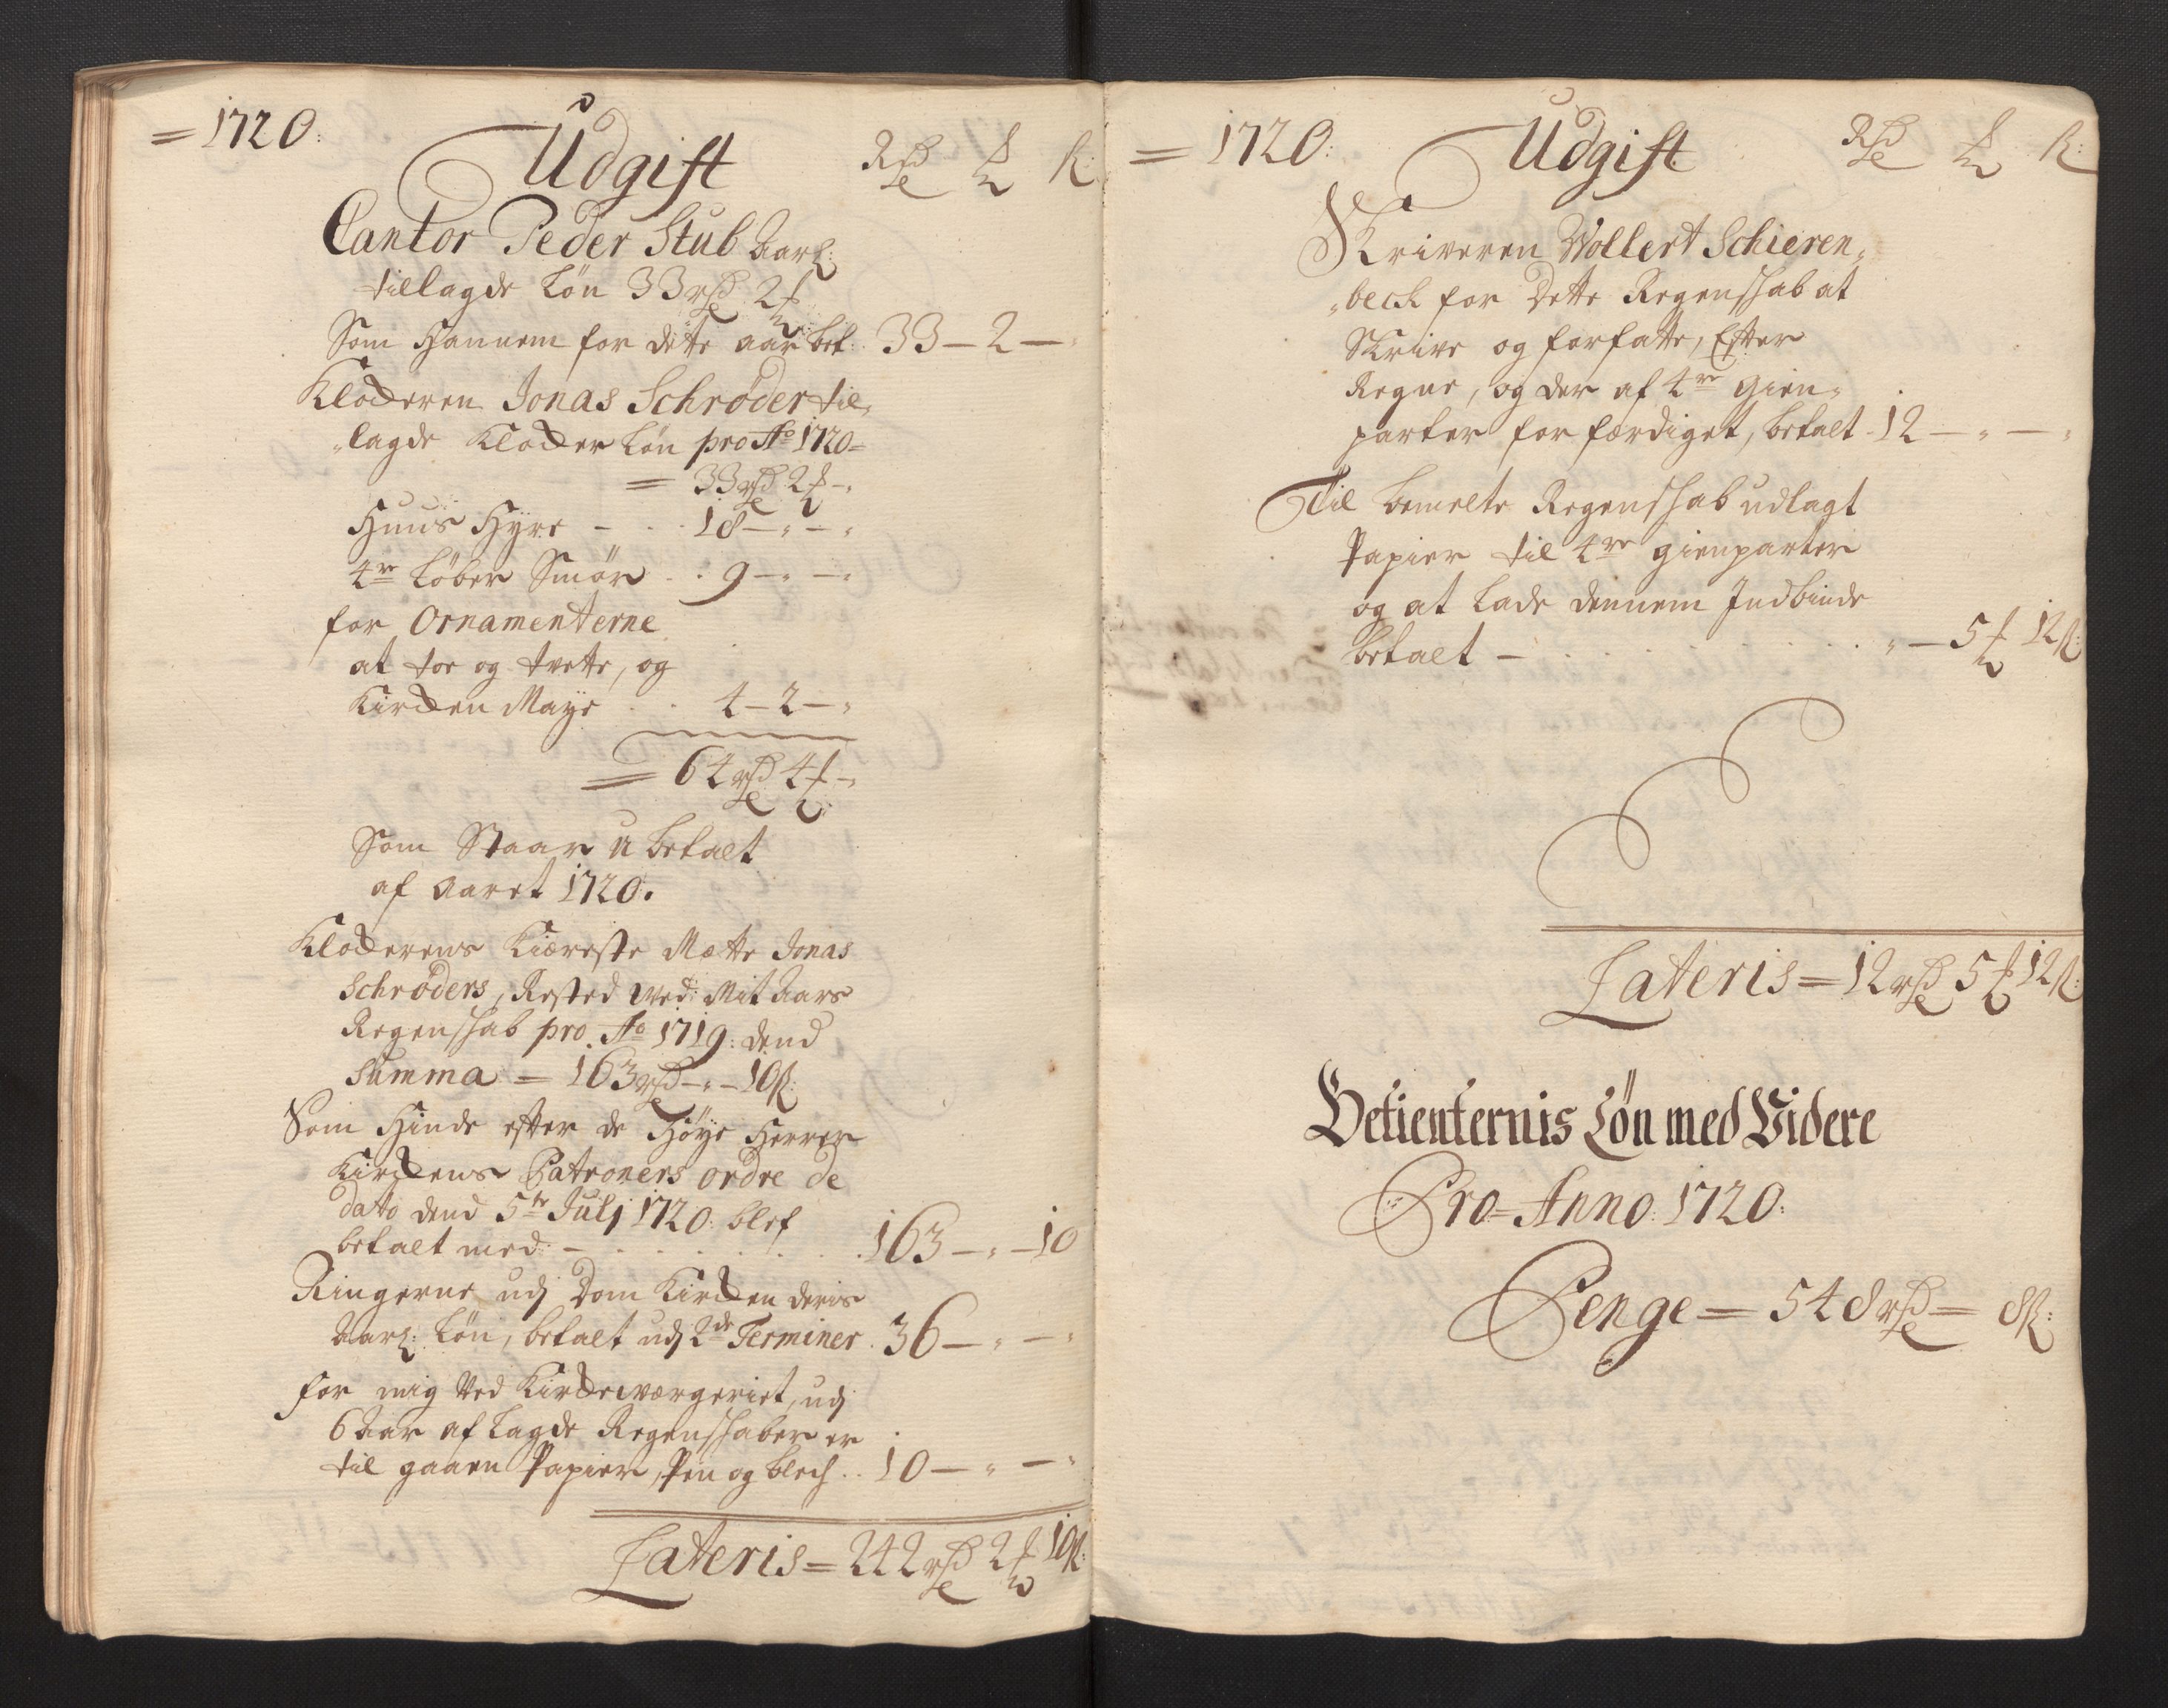 = 1720:
Udgift Rdr ₰ ß:
Cantor Peder Stub Aarl:
tillagde Løn 33 rdr 2 ₰
Som Hannem for dette aar bet: 33 – 2 – „
Klockeren Jonas Schrøder til„
„lagde Klocker Løn pro Ao 1720 =
= 33 rdr 2 ₰ – „
Huus Hyre – . . 18 – „ – „
4re Løber Smør . . 9 – „ – „
for Ornamenterne
at toe og tvette, og
Kircken Maye . . 4 – 2 – „
= 64 rdr 4 ₰ – „
Som Staar ubetalt
af Aaret 1720.
Klockerens Kiæreste Mette Jonas
Schrøders, Rested Wed Mit Aars
Regenskab pro Ao 1719: dend
Summa = 163 rdr – „ – 10 ß:
Som Hinde efter de Høye Herrer
Kirckens Patroners ordre de
dato dend 5te Julj 1720: blef
betalt med – . . . . . 163 – „ – 10
Ringerne udj Dom Kircken deris
Aarl: Løn, betalt udj 2de Terminer . 36 – „ – „
for mig Ved Kirckeværgeriet, udj
6 Aar aflagde Regenskaber er
til gaaen Papier, Pen og blech . . 10 – „ – „
Lateris = 242 rdr 2 ₰ 10 ß:
= 1720: Udgift Rdr ₰ ß:
Skriveren Wollert Schieren„
„beck for Dette Regenskab at
Skrive og forfatte, Efter
Regne, og der af 4re Gien„
parter forfærdiget, betalt – 12 – „ – „
Til bemelte Regenskab udlagt
Papier til 4re gienparter
og at lade dennem Indbinde
betalt – . . . . . . „ – 5 ₰ 12 ß:
Lateris = 12 rdr 5 ₰ 12 ß:
Betienternis Løn med Videre
Pro = Anno: 1720:
Penge = 548 rdr = 8 ß: